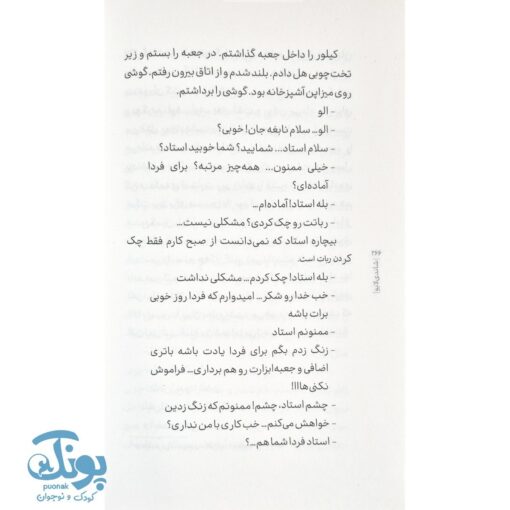 کیلور را داخل جعبه گذاشتم. در جعبه را بستم و زیر
تخت‌چوبی هل دادم. بلند شدم و از اتاق بیرون رفتم. گوشی
روی میز اپن آشپزخانه بود. گوشی را برداشتم.
- الو
- الو... سلام نابغه جان! خوبی؟
- سلام استاد... شمایید؟ شما خوبید استاد؟
- خیلی ممنون... همه‌چیز مرتبه؟ برای فردا
آماده‌ای؟
- بله استاد! آماده‌ام...
- رباتت رو چک کردی؟ مشکلی نیست...
بیچاره استاد که نمی‌دانست از صبح کارم فقط چک
کردن ربات است.
- بله استاد! چک کردم... مشکلی نداشت
- خب خدا رو شکر... امیدوارم که فردا روز خوبی
برات باشه
- ممنونم استاد
- زنگ زدم بگم برای فردا یادت باشه باتری
اضافی و جعبه‌ابزارت رو هم برداری... فراموش
نکنی‌هااا!
- چشم استاد، چشم! ممنونم که زنگ زدین
- خواهش می‌کنم... خب کاری با من نداری؟
- استاد فردا شما هم...؟
پونک
puonak
کودک و نوجوان